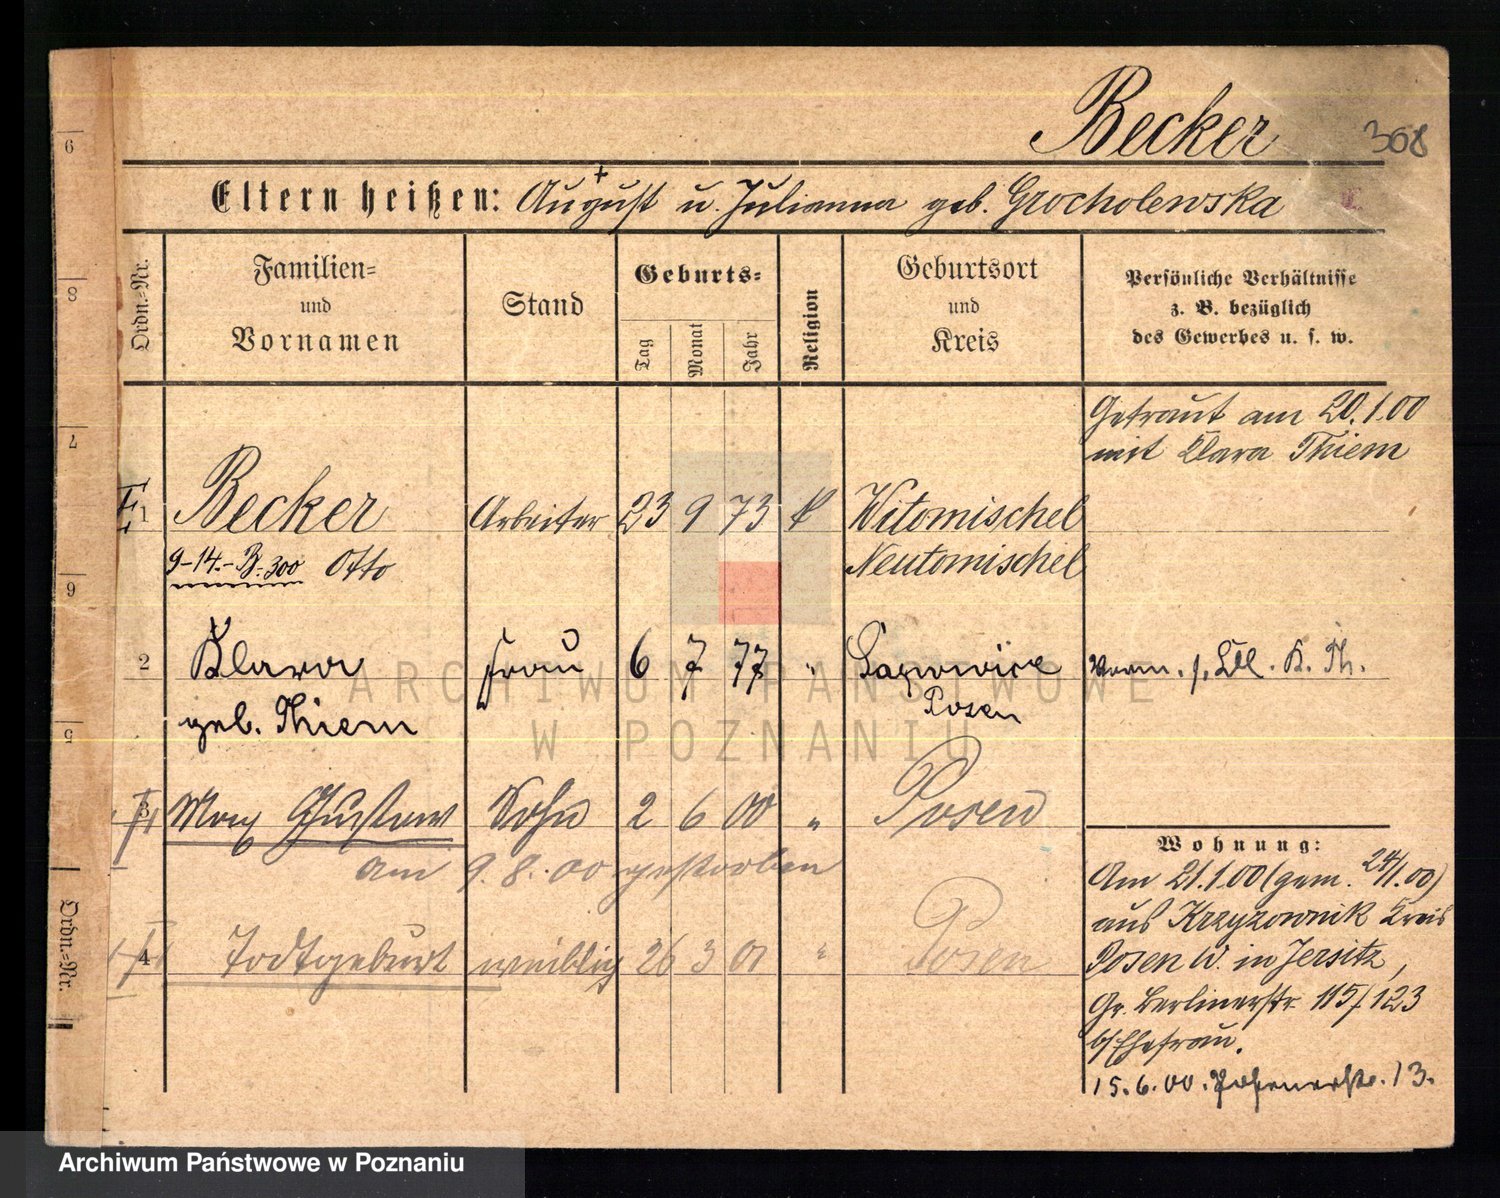 Becker 368
Eltern heißen: August u. Julianna geb. Grocholewska
Ordn.-Nr.
Familien-
und
Vornamen
Stand
Geburts-
Tag
Monat
Jahr
Religion
Geburtsort
und
Kreis
Persönliche Verhältnisse
z. B. bezüglich
des Gewerbes u. s. w.
Getraut am 20.1.00
mit Klara Thiem
1 Becker Arbeiter 23 9 73 k Witomischel
9-14.-B.300 Otto Neutomischel
2 Klara Frau 6 7 77 " Posen
geb. Thiem
3 Max Gustav Sohn 2 6 00 " Posen
am 9.8.00 gestorben
4 Todtgeburt weiblich 26 3 01 " Posen
Wohnung:
Am 21.1.00 (gem. 24/1.00)
aus Krzyzownik Kreis
Posen W. in Jersitz,
Gr. Berlinerstr. 115/123
b/Ehefrau.
15.6.00. 13.
6
8
7
6
5
Ordn.-Nr.
ARCHIWUM PAŃSTWOWE
W POZNANIU
Archiwum Państwowe w Poznaniu